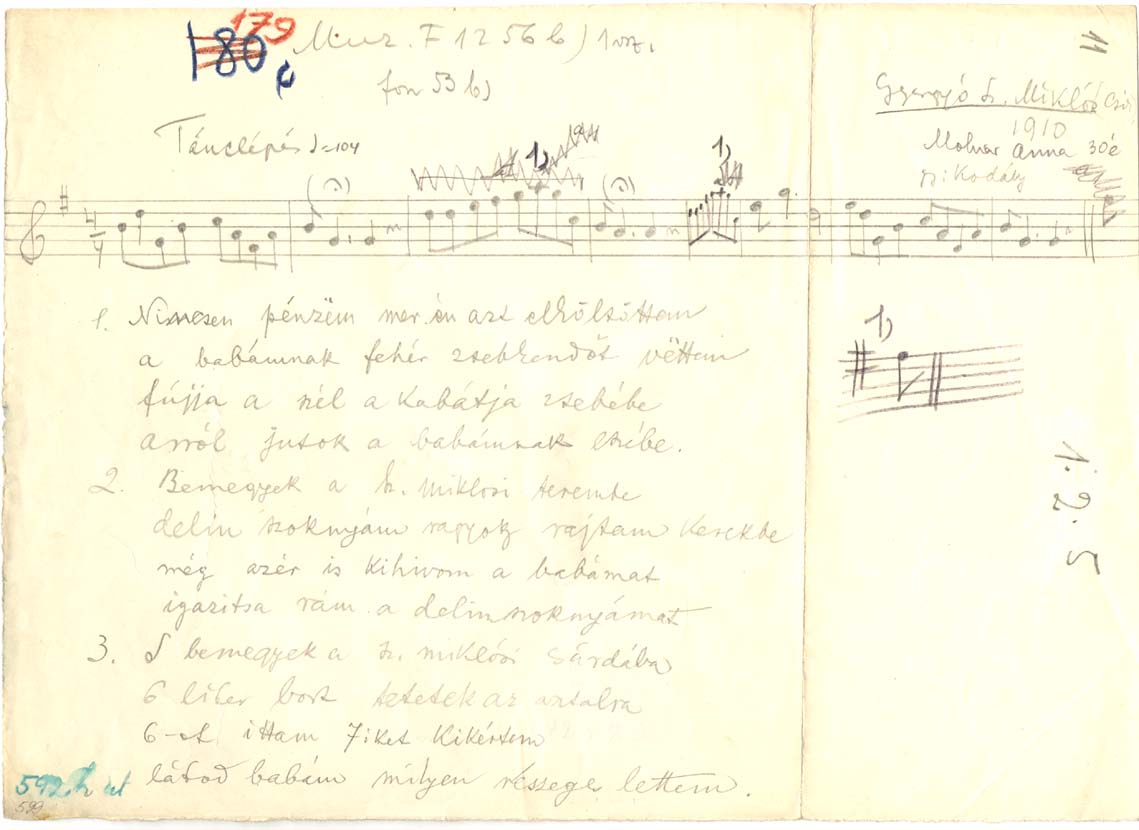 179
180
Muz. F 1256 b) 1 vsz.
fon 53 b)
11
Gyergyó Sz. Miklós
1910
Molnar Anna 30 é
Kodály
Tánclépés ♩=104
1)
1)
4
1. Nincsen pénzëm mer én azt elköltöttem
a babámnak fehér zsebkendőt vëttem
fújja a szél a Kabátja zsebébe
arról jutok a babámnak eszébe.
2. Bemegyek a sz. miklosi terembe
delin szoknyám ragyog rajtam Kerekbe
még azér is kihivom a babámat
igazitsa rám a delinszoknyámat
3. S bemegyek a sz. miklósi
6 liter bort tetetek az asztalra
6-ot ittam 7iket Kikértem
látod babám milyen részege lettem.
1)
1. 2. 5
592.
599